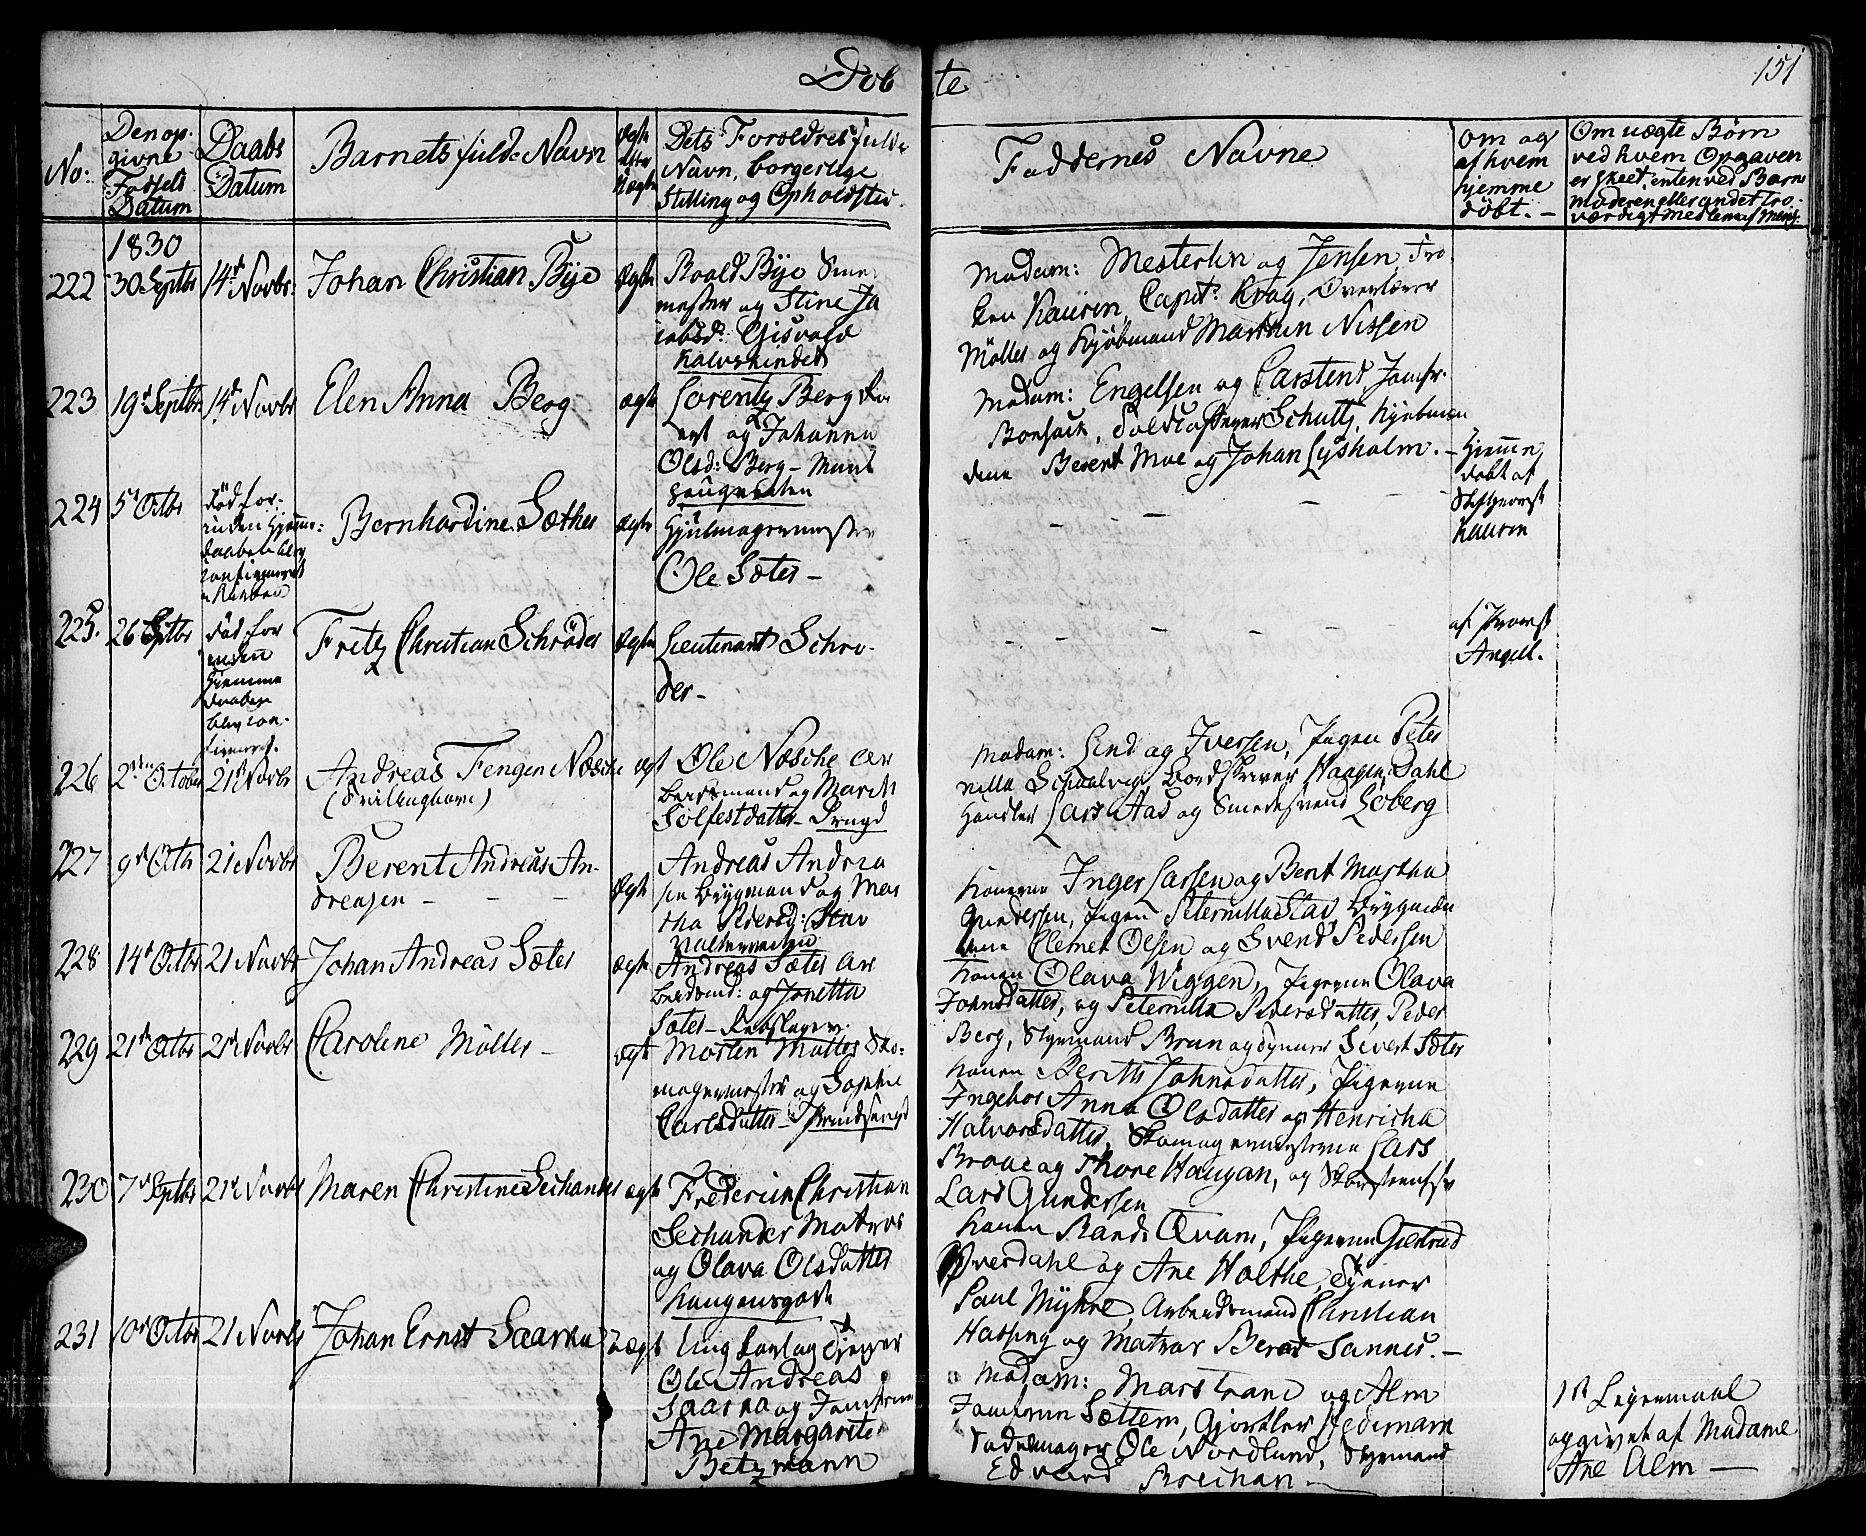 Döb
te
151
No:
Den op-
givne
Fødsels
Datum
Daabs
Datum
Barnets fulde Navn
Ægte
eller
Uægte
Dets Forældres fulde
Navn, borgerlige
Stilling og Opholdsted.
Faddernes Navne
Om og
af hvem
hjemme
döbt. -
Om uægte Børn
ved hvem Opgaven
er skeet, enten ved Barne
moderen eller andet tro-
værdigt medlem af Menig.
1830
222 30 Septbr 14d Novbr: Johan Christian Bye Ægte
Roald Bye
mester og Stine Ja
cobsd: Gisvold
Kalvskindet
Madam: Mesterlin og Jensen Frö
ken Kaurin, Capit: Krag, Overlærer
Möller og Kjöbmand Martin Nissen
223 19d Septbr 14d Novbr Elen Anna Berg ægte
Lorentz Berg
og Johanna
Olsd: Berg -
Madam: Engelsen og Carstens, Jomfr.
Bonsach, Schultz, Kjöbmæn
dene Berent Moe og Johan Lysholm. -
224 5d Octbr
død for-
inden Hjemme:
daaben blev
confirmeret
i Kirken
Bernhardine Sæther ægte
Hjulmagermester
Ole Sæter -
Hjemme
döbt af
Stiftsprovst
Kaurin
225. 26 Septbr
död for
inden
Hjemme
daaben
blev con-
firmeret.
Fritz Christian Schröder Ægte
Lieutenant Schrö-
der -
af Provst
Angell.
226 2den October 21d Novbr Andreas Fengen Næsche ægt
(Tvillingbarn)
Ole Næsche Ar
beidsmand og Marith
Solfestdatter -
Madam: Lind og Iversen, Pigen Peter
nille Schialvig, Haagen Dahl
Handler Lars Aas og Smedesvend Soberg
227 9d Octbr 21 Novbr Berent Andreas An-
dreasen - - - Ægte
Andreas Andrea
sen Brygmand og Mar
tha Pedersd: Stav
Konerne Inger Larsen og Berit Martha
Gundersen, Pigen Peternilla Stav, Brygmæn
dene Clemet Olsen og Svend Pedersen
228 14d Octbr 21 Novbr Johan Andreas Sæter ægte
Andreas Sæter Ar
beidsmd: og Jonetta
Sæter -
Konen Olava Wiggen, Pigerne Olava
Johnsdatter, og Peternilla Pedersdatter, Peder
Berg, Styrmand Brun og Dyner Sivert Sæter
229 21d Octbr 21d Novbr Caroline Möller - ægte
Morten Möller Sko-
magermester og Sophie
Carlsdatter -
Konen Berith Johnsdatter, Pigerne
Ingebor Anna Olsdatter og Henricha
Halvorsdatter, Skomagermesterne Lars
Broue og Thore Haugan, og
Lars Gundersen
230 7d Septbr 21d Novbr Maren Christine Sechander ægte
Frederich Christian
Sechander Matros
og Olava Olsdatter
Konen Randi Qvam, Pigerne Giertrud
Øverdahl og Ane Holthe, Tjener
Paul Myhre, Arbeidsmand Christian
Hassing og Matros Berat Sannes. -
231 10d Octbr 21 Novbr Johan Ernst Saarna Uægt
Ungkarl og Tjener
Ole Andreas
Saarna og Jomfrue
Ane Margarite
Betzmann
Madam: Marstrand og Alm
Jomfruen Sættem, Gjørtler Hedemark
Sadelmager Ole Nordlund, Styrmand
Edvard Breihan -
1st Leiermaal
opgivet af Madame
Ane Alm -